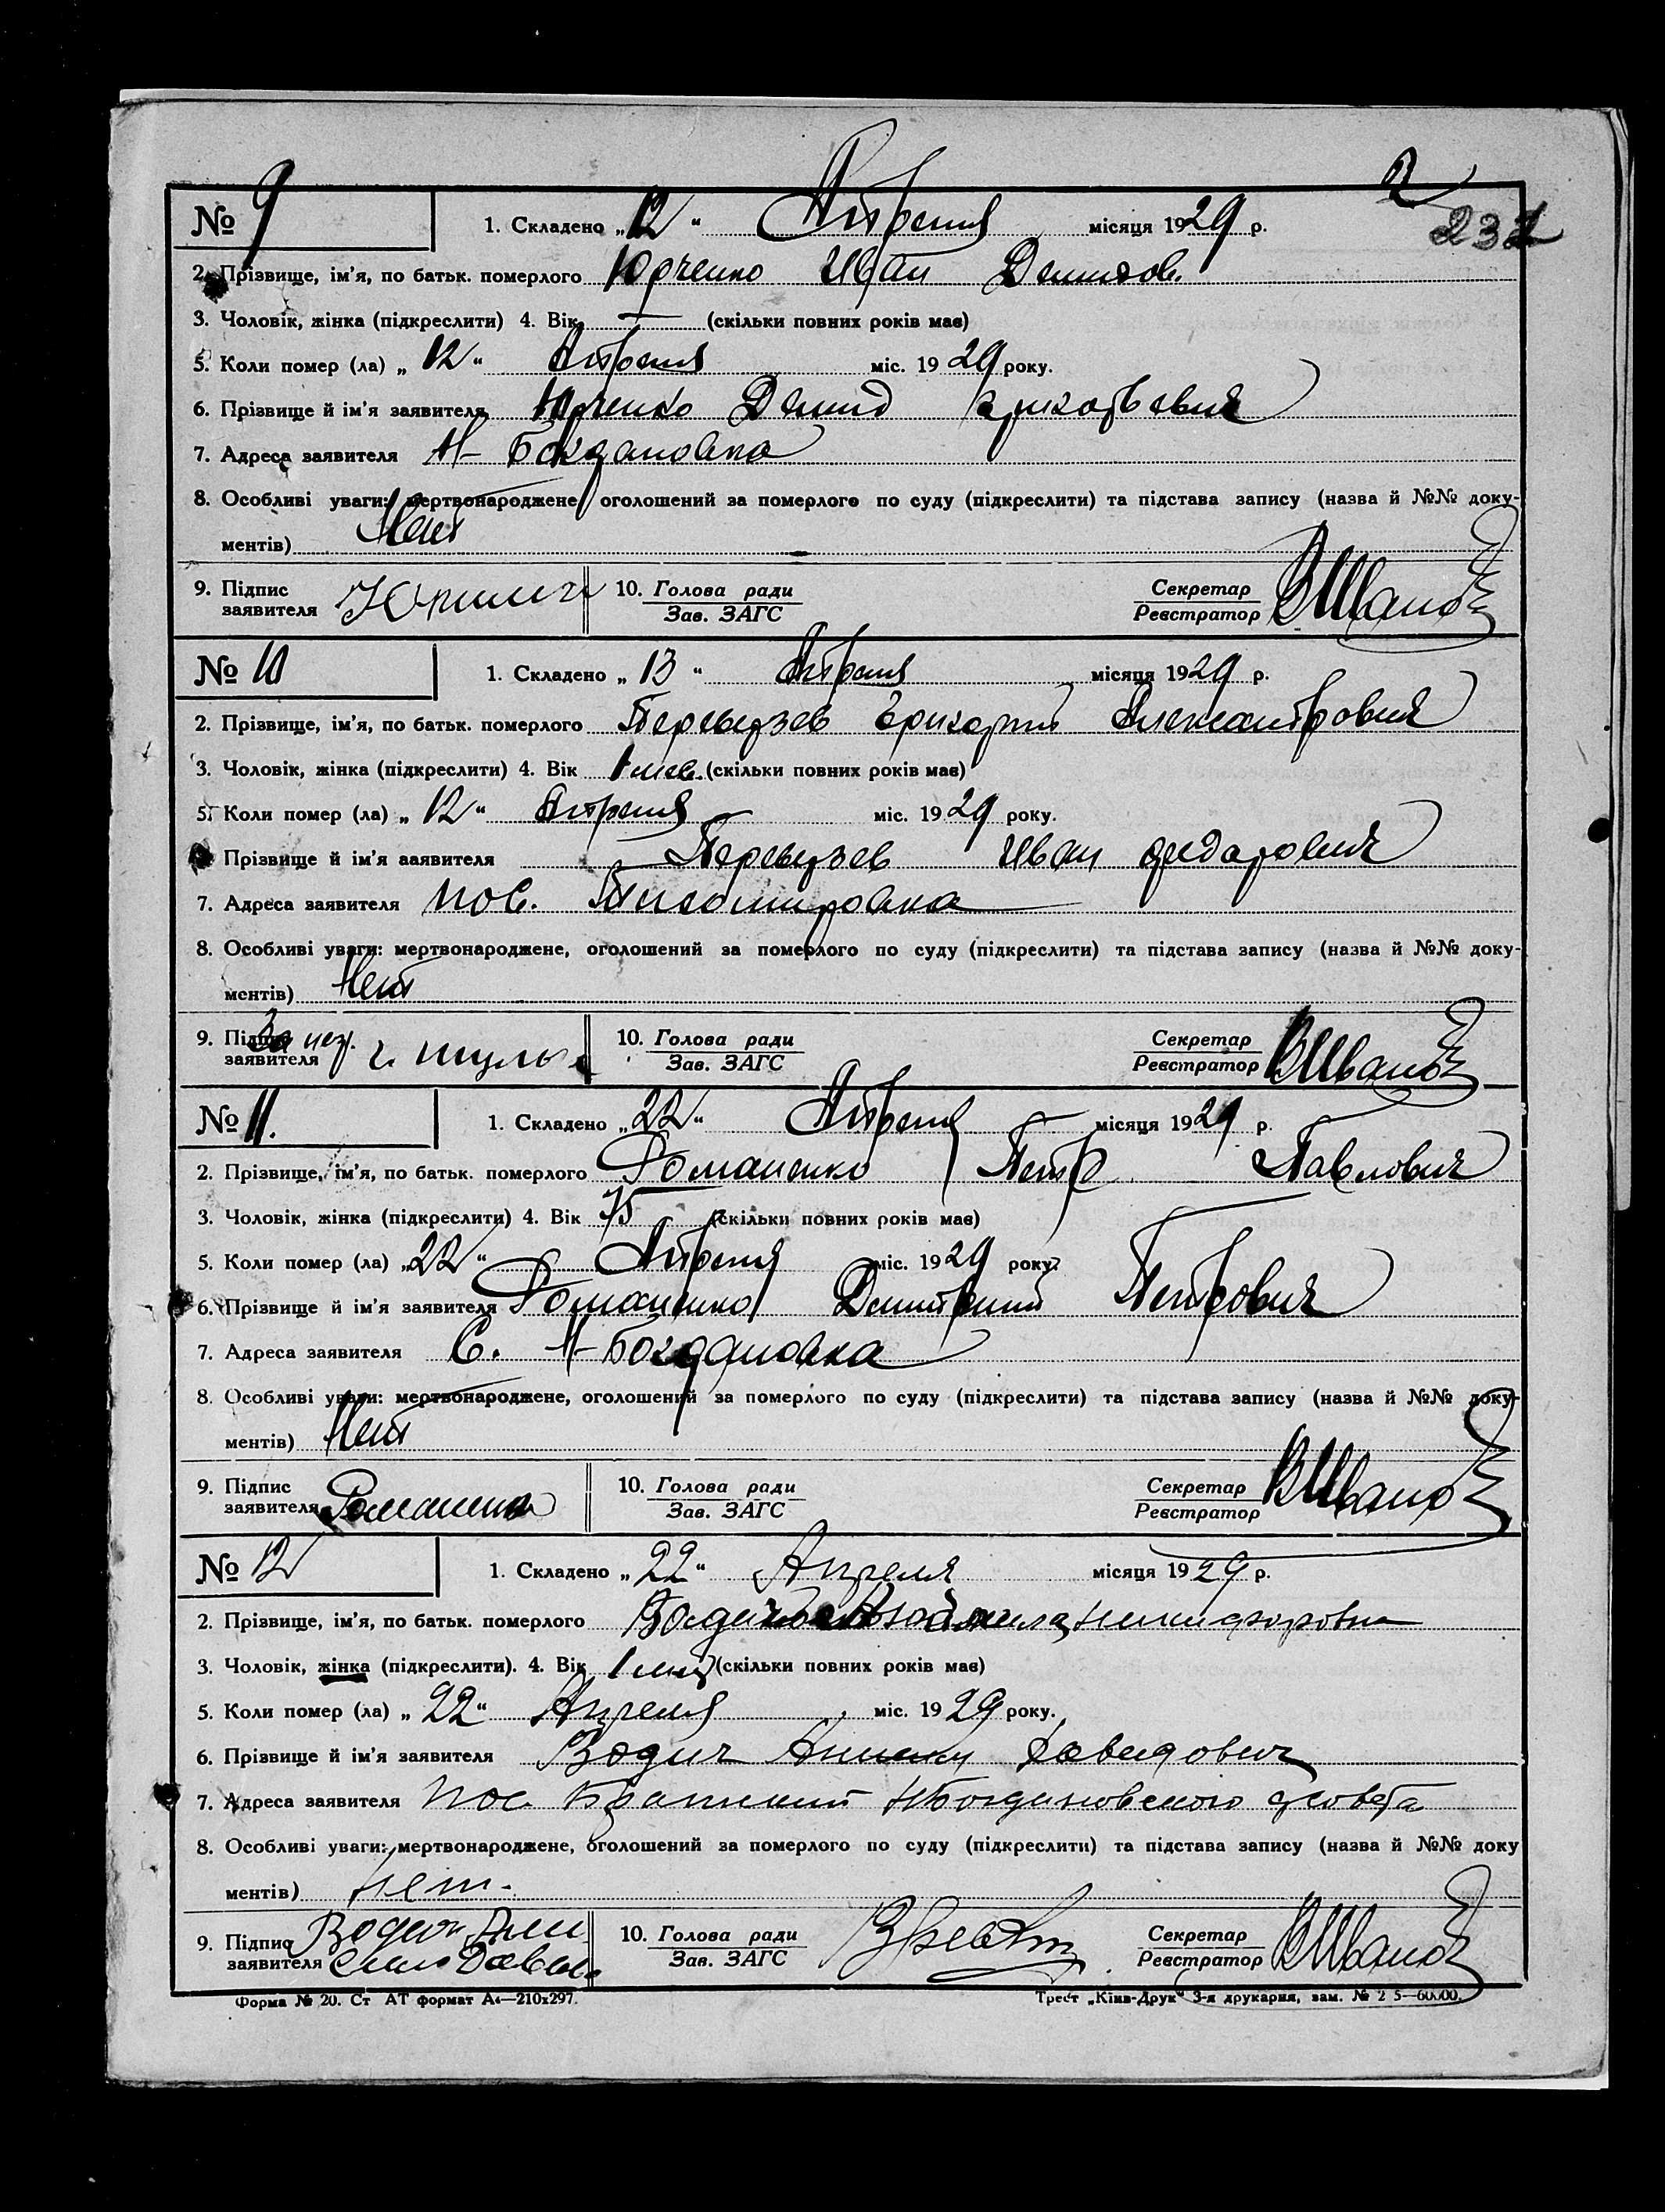 2
237
№ 9 1. Складено „12“ Апреля місяця 1929 р.
2. Прізвище, ім'я, по батьк. померлого Юрченко Иван Демидов.
3. Чоловік, жінка (підкреслити) 4. Вік — (скільки повних років має)
5. Коли помер (ла) „12“ Апреля міс. 1929 року.
6. Прізвище й ім'я заявителя Юрченко Демид Григорьевич
7. Адреса заявителя Н-Богдановка
8. Особливі уваги: мертвонароджене, оголошений за померлого по суду (підкреслити) та підстава запису (назва й №№ доку-
ментів) Нет
9. Підпис заявителя 10. Голова ради Зав. ЗАГС Секретар Реєстратор ВИванов
№ 10 1. Складено „13“ Апреля місяця 1929 р.
2. Прізвище, ім'я, по батьк. померлого Перевузев Григорий Александрович
3. Чоловік, жінка (підкреслити) 4. Вік 1 мес. (скільки повних років має)
5. Коли помер (ла) „12“ Апреля міс. 1929 року.
Прізвище й ім'я заявителя Перевузев Иван
7. Адреса заявителя пос. Тихомировка
8. Особливі уваги: мертвонароджене, оголошений за померлого по суду (підкреслити) та підстава запису (назва й №№ доку-
ментів) Нет
9. Підпис заявителя За нег. 10. Голова ради Зав. ЗАГС Секретар Реєстратор ВИванов
№ 11. 1. Складено „22“ Апреля місяця 1929 р.
2. Прізвище, ім'я, по батьк. померлого Романенко Петр Павлович
3. Чоловік, жінка (підкреслити) 4. Вік 75 (скільки повних років має)
5. Коли помер (ла) „22“ Апреля міс. 1929 року.
6. Прізвище й ім'я заявителя Романенко Дмитрий Петрович
7. Адреса заявителя С. Н-Богдановка
8. Особливі уваги: мертвонароджене, оголошений за померлого по суду (підкреслити) та підстава запису (назва й №№ доку-
ментів) Нет
9. Підпис заявителя Романенко 10. Голова ради Зав. ЗАГС Секретар Реєстратор ВИванов
№ 12 1. Складено „22“ Апреля місяця 1929 р.
2. Прізвище, ім'я, по батьк. померлого Никифоровна
3. Чоловік, жінка (підкреслити). 4. Вік 1 (скільки повних років має)
5. Коли помер (ла) „22“ Апреля міс. 1929 року.
6. Прізвище й ім'я заявителя Водич Давидович
7. Адреса заявителя пос. Братский НБогдановского с/совета
8. Особливі уваги: мертвонароджене, оголошений за померлого по суду (підкреслити) та підстава запису (назва й №№ доку
ментів) Нет.
9. Підпис заявителя Водич 10. Голова ради Зав. ЗАГС Секретар Реєстратор ВИванов
Форма № 20. Ст АТ формат А4—210x297. Трест „Київ-Друк“ 3-я друкарня, зам. №